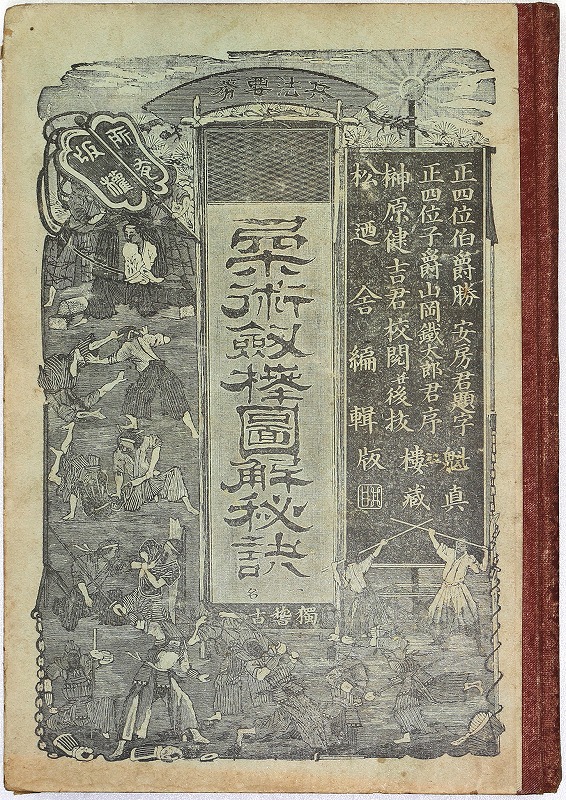 兵法要務
所有
版權
正四位伯爵勝安房君題字
正四位子爵山岡鐵太郎君序
榊原健吉君校閲并後抜
松迺舎編輯
魁真
樓藏
版
柔術劔棒圖解秘訣
一名
獨䅲古